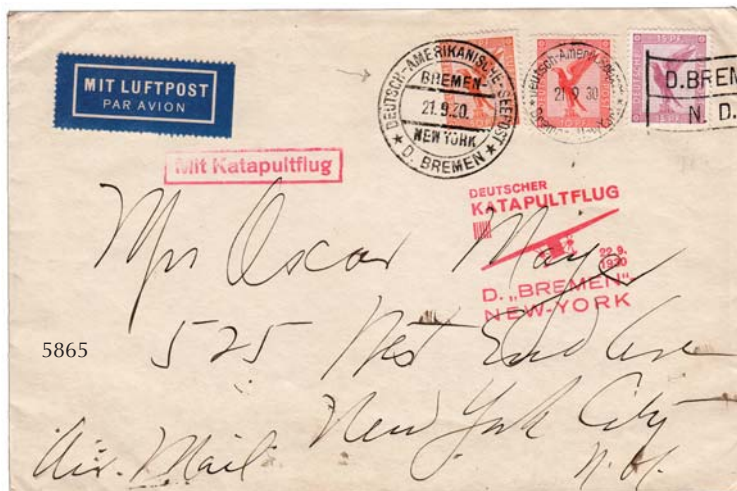 MIT LUFTPOST
PAR AVION
DEUTSCH-AMERIKANISCHE-SEEPOST
BREMEN-
21.9.20.
NEW YORK
★ D. BREMEN ★
21 9 30
D.BREM
N. D.
Mit Katapultflug
DEUTSCHER
KATAPULTFLUG
22.9.
1930
D. „BREMEN"-
NEW-YORK
Mrs Oscar Mayer
5865
525 West End Ave
New York City
Air. Mail N.Y.